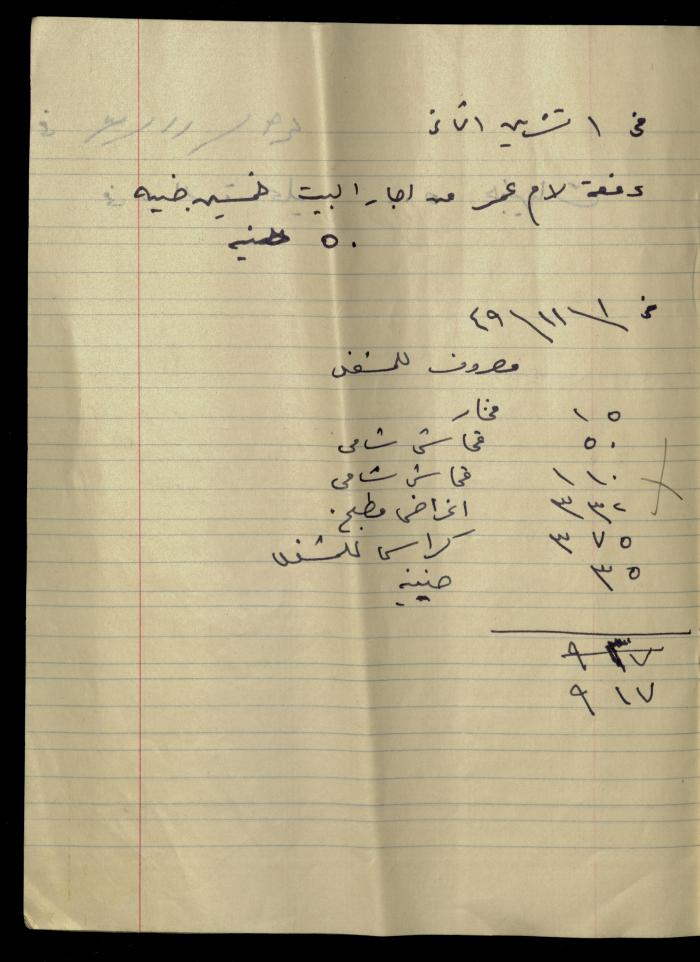 في ١ تشرين الثاني
دفعة لام عمر من اجار البيت خمسين جنيه
٥٠ جنيه
في ١/١١/٤٩
مصروف للمشغل
١٥ فخار
٥٠ قماش شامي
١١٠ قماش شامي
٣٣٢ اغراض مطبخ
٣٧٥ كراسي للمشغل
٣٥ صينيه
٩٣٧
٩١٧